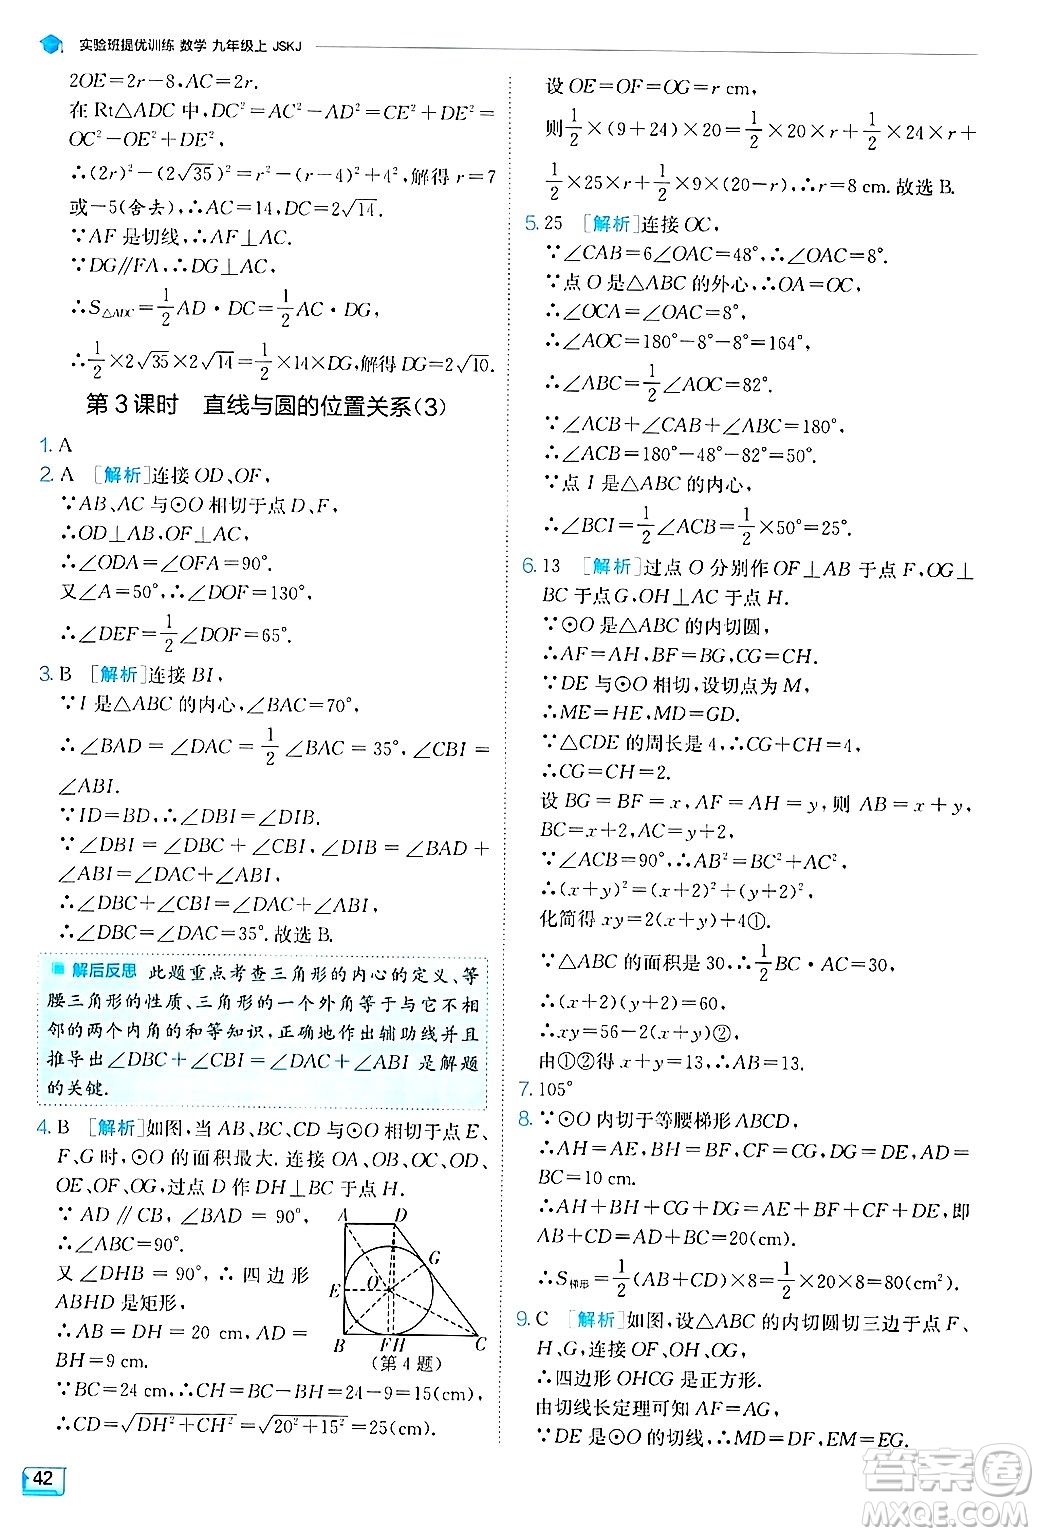 实验班提优训练 数学 九年级上 JSKJ
2OE=2r-8,AC=2r.
在 Rt△ADC 中,DC²=AC²-AD²=CE²+DE²=
OC²-OE²+DE²,
∴(2r)²-(2√35)²=r²-(r-4)²+4²,解得 r=7
或-5(舍去),∴AC=14,DC=2√14.
∵AF 是切线,∴AF⊥AC.
∵DG∥FA,∴DG⊥AC,
∴S△ADC=1/2 AD·DC=1/2 AC·DG,
∴1/2×2√35×2√14=1/2×14×DG,解得 DG=2√10.
第 3 课时 直线与圆的位置关系(3)
1. A
2. A [解析]连接 OD、OF,
∵AB、AC 与⊙O 相切于点 D、F,
∴OD⊥AB,OF⊥AC,
∴∠ODA=∠OFA=90°.
又∠A=50°,∴∠DOF=130°,
∴∠DEF=1/2∠DOF=65°.
3. B [解析]连接 BI,
∵I 是△ABC 的内心,∠BAC=70°,
∴∠BAD=∠DAC=1/2∠BAC=35°,∠CBI=
∠ABI.
∵ID=BD,∴∠DBI=∠DIB.
∵∠DBI=∠DBC+∠CBI,∠DIB=∠BAD+
∠ABI=∠DAC+∠ABI,
∴∠DBC+∠CBI=∠DAC+∠ABI,
∴∠DBC=∠DAC=35°.故选 B.
解后反思 此题重点考查三角形的内心的定义、等
腰三角形的性质、三角形的一个外角等于与它不相
邻的两个内角的和等知识,正确地作出辅助线并且
推导出∠DBC+∠CBI=∠DAC+∠ABI 是解题
的关键.
4. B [解析]如图,当 AB、BC、CD 与⊙O 相切于点 E、
F、G 时,⊙O 的面积最大.连接 OA、OB、OC、OD、
OE、OF、OG,过点 D 作 DH⊥BC 于点 H.
∵AD∥CB,∠BAD=90°,
∴∠ABC=90°.
又∠DHB=90°,∴四边形
ABHD 是矩形,
∴AB=DH=20 cm,AD=
BH=9 cm.
A D G O E B F H C
(第 4 题)
∵BC=24 cm,∴CH=BC-BH=24-9=15(cm),
∴CD=√(DH²+CH²)=√(20²+15²)=25(cm).
设 OE=OF=OG=r cm,
则1/2×(9+24)×20=1/2×20×r+1/2×24×r+
1/2×25×r+1/2×9×(20-r),∴r=8 cm.故选 B.
5. 25 [解析]连接 OC,
∵∠CAB=6∠OAC=48°,∴∠OAC=8°.
∵点 O 是△ABC 的外心,∴OA=OC,
∴∠OCA=∠OAC=8°,
∴∠AOC=180°-8°-8°=164°,
∴∠ABC=1/2∠AOC=82°.
∵∠ACB+∠CAB+∠ABC=180°,
∴∠ACB=180°-48°-82°=50°.
∵点 I 是△ABC 的内心,
∴∠BCI=1/2∠ACB=1/2×50°=25°.
6. 13 [解析]过点 O 分别作 OF⊥AB 于点 F,OG⊥
BC 于点 G,OH⊥AC 于点 H.
∵⊙O 是△ABC 的内切圆,
∴AF=AH,BF=BG,CG=CH.
∵DE 与⊙O 相切,设切点为 M,
∴ME=HE,MD=GD.
∵△CDE 的周长是 4,∴CG+CH=4,
∴CG=CH=2.
设 BG=BF=x,AF=AH=y,则 AB=x+y,
BC=x+2,AC=y+2.
∵∠ACB=90°,∴AB²=BC²+AC²,
∴(x+y)²=(x+2)²+(y+2)²,
化简得 xy=2(x+y)+4①.
∵△ABC 的面积是 30,∴1/2BC×AC=30,
∴(x+2)(y+2)=60,
∴xy=56-2(x+y)②,
由①②得 x+y=13,∴AB=13.
7. 105°
8. ∵⊙O 内切于等腰梯形 ABCD,
∴AH=AE,BH=BF,CF=CG,DG=DE,AD=
BC=10 cm,
∴AH+BH+CG+DG=AE+BF+CF+DE,即
AB+CD=AD+BC=20(cm),
∴S梯形=1/2(AB+CD)×8=1/2×20×8=80(cm²).
9. C [解析]如图,设△ABC 的内切圆切三边于点 F、
H、G,连接 OF、OH、OG,
∴四边形 OHCG 是正方形.
由切线长定理可知 AF=AG,
∵DE 是⊙O 的切线,∴MD=DF,EM=EG.
42
答案圈
MXQE.COM